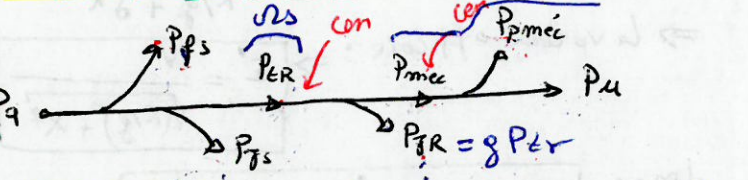 Ωs cem cem
Pfs PtR Pmec Ppméc
Pa Pu
PJs PJR = g Ptr